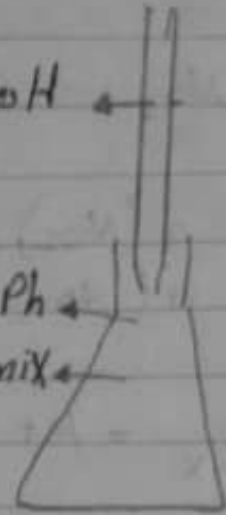 oH
Ph
mix